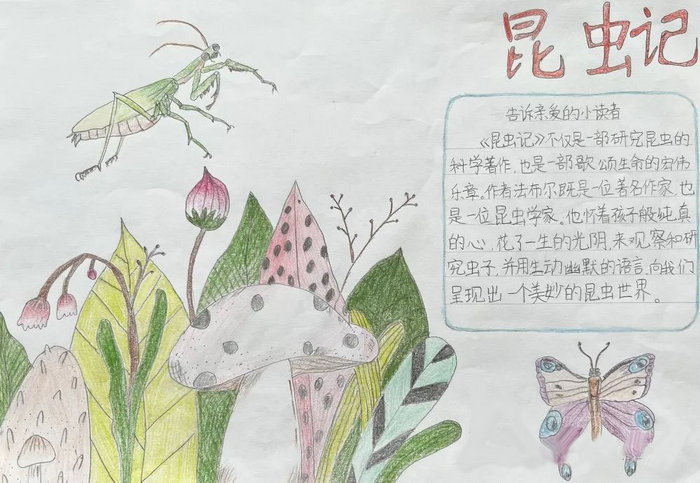 昆虫记
告诉亲爱的小读者
《昆虫记》不仅是一部研究昆虫的
科学著作,也是一部歌颂生命的宏伟
乐章,作者法布尔既是一位著名作家,也
是一位昆虫学家。他怀着孩子般纯真
的心,花了一生的光阴,来观察和研
究虫子,并用生动幽默的语言,向我们
呈现出一个美妙的昆虫世界。